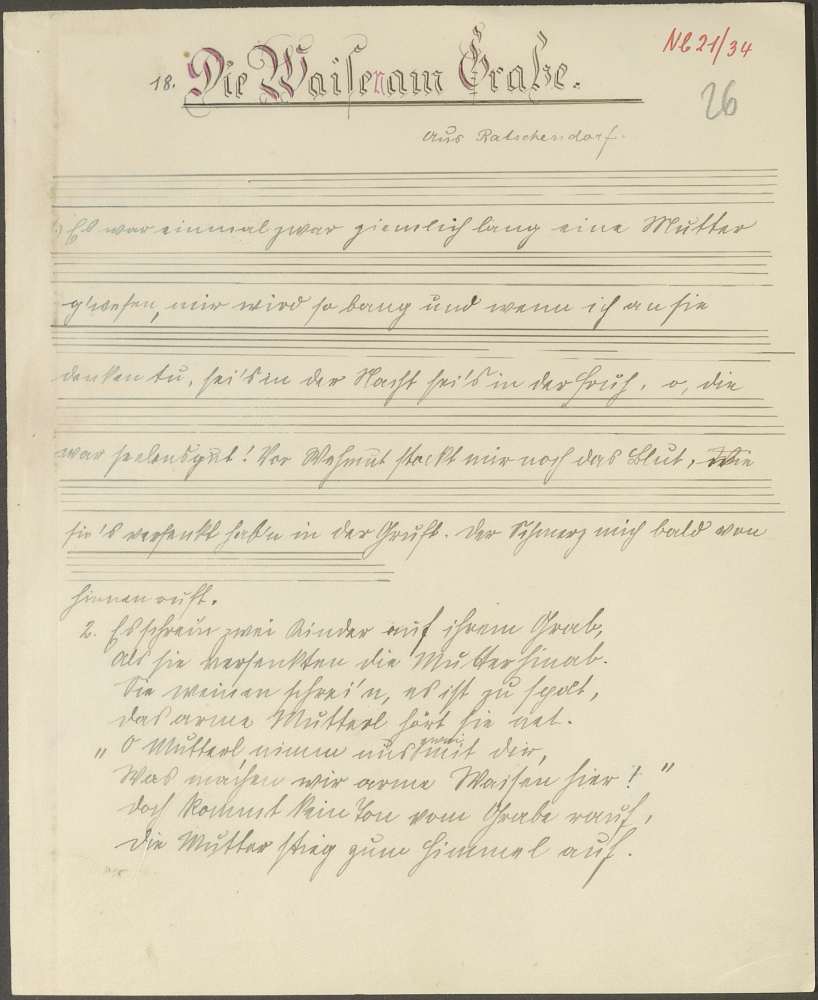 Nb 21/34
18. Die Waisen am Grabe.
26
Aus Ratschendorf.
1) Es war einmal zwar ziemlich lang eine Mutter
g'wesen, mir wird so bang und wenn ich an sie
denken tu, sei's in der Nacht sei's in der Fruh, o, die
war seelensgut! Vor Wehmut stockt mir noch das Blut, wie
sie's versenkt hab'n in der Gruft. Der Schmerz mich bald von
hinnen ruft.
2. Es schrein zwei Kinder auf ihrem Grab,
Als sie versenkten die Mutter hinab.
Sie weinen schrei'n, es ist zu spät,
das arme Mutterl hört sie net.
„O Mutterl nimm uns zwei mit dir,
Was machen wir arme Waisen hier!"
Doch kommt kein Ton vom Grabe rauf,
die Mutter stieg zum Himmel auf.